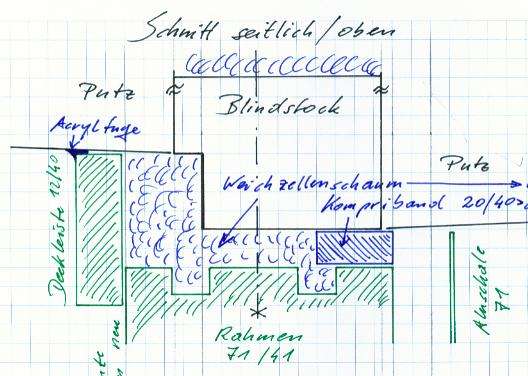 Schnitt seitlich/oben
Putz
Blindstock
Acrylfuge
Putz
Weichzellenschaum
Kompriband 20/40
Deckleiste 12/40
Aluschale
71
Rahmen
71/41
neu